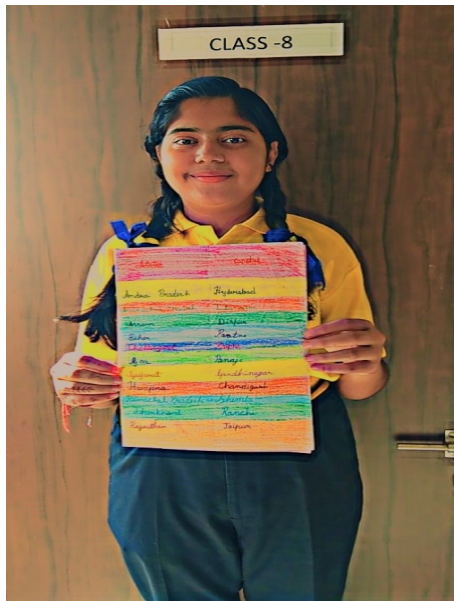 CLASS -8
State Capital
Andra Pradesh Hyderabad
Assam Dispur
Bihar
Goa Panaji
Gujarat Gandhinagar
Haryana Chandigarh
Himachal Pradesh Shimla
Jharkhand Ranchi
Rajasthan Jaipur